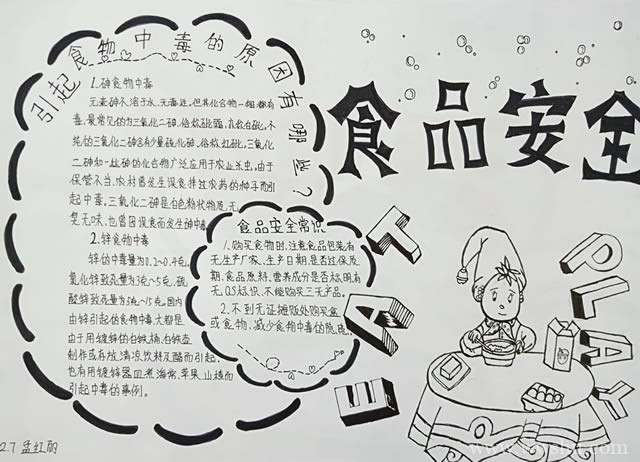 引起食物中毒的原因有哪些？
食品安全
1.砷食物中毒
元素砷不溶于水、无毒性，但其化合物一般都有
毒，最常见的为三氧化二砷、俗称砒霜
纯的三氧化二砷含有少量硫化砷，俗称红砒，三氧化
二砷和一些砷的化合物广泛应用于农业杀虫，由于
保管不当，农村曾发生误食拌过农药的种子而引
起中毒，三氧化二砷是白色粉状物质，无
臭无味，也曾因误食而发生砷中毒
2.锌食物中毒
锌的中毒量为0.2~0.4克，
氧化锌致死量为3克~5克，硫
酸锌致死量为5克~15克。国内
由锌引起的食物中毒，大都是
由于用镀锌的白铁桶、白铁壶
制作或存放清凉饮料及醋而引起，
也有用镀锌器皿煮海棠、苹果、山楂而
引起中毒的事例。
食品安全常识
1.购买食物时，注意食品包装有
无生产厂家、生产日期，是否过保质
期，食品原料、营养成分是否标明有
无QS标识，不能购买三无产品。
2.不到无证摊贩处购买盒
或食物，减少食物中毒的隐患。
EAT
PLAY
2.7 孟红丽